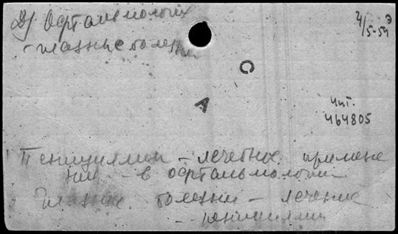 Офтальмология
- глазные болезни
4/5-54
С
А
чит.
464805
Пенициллин - лечебн. примене
ние - в офтальмологии
Глазные болезни - лечение
пенициллин